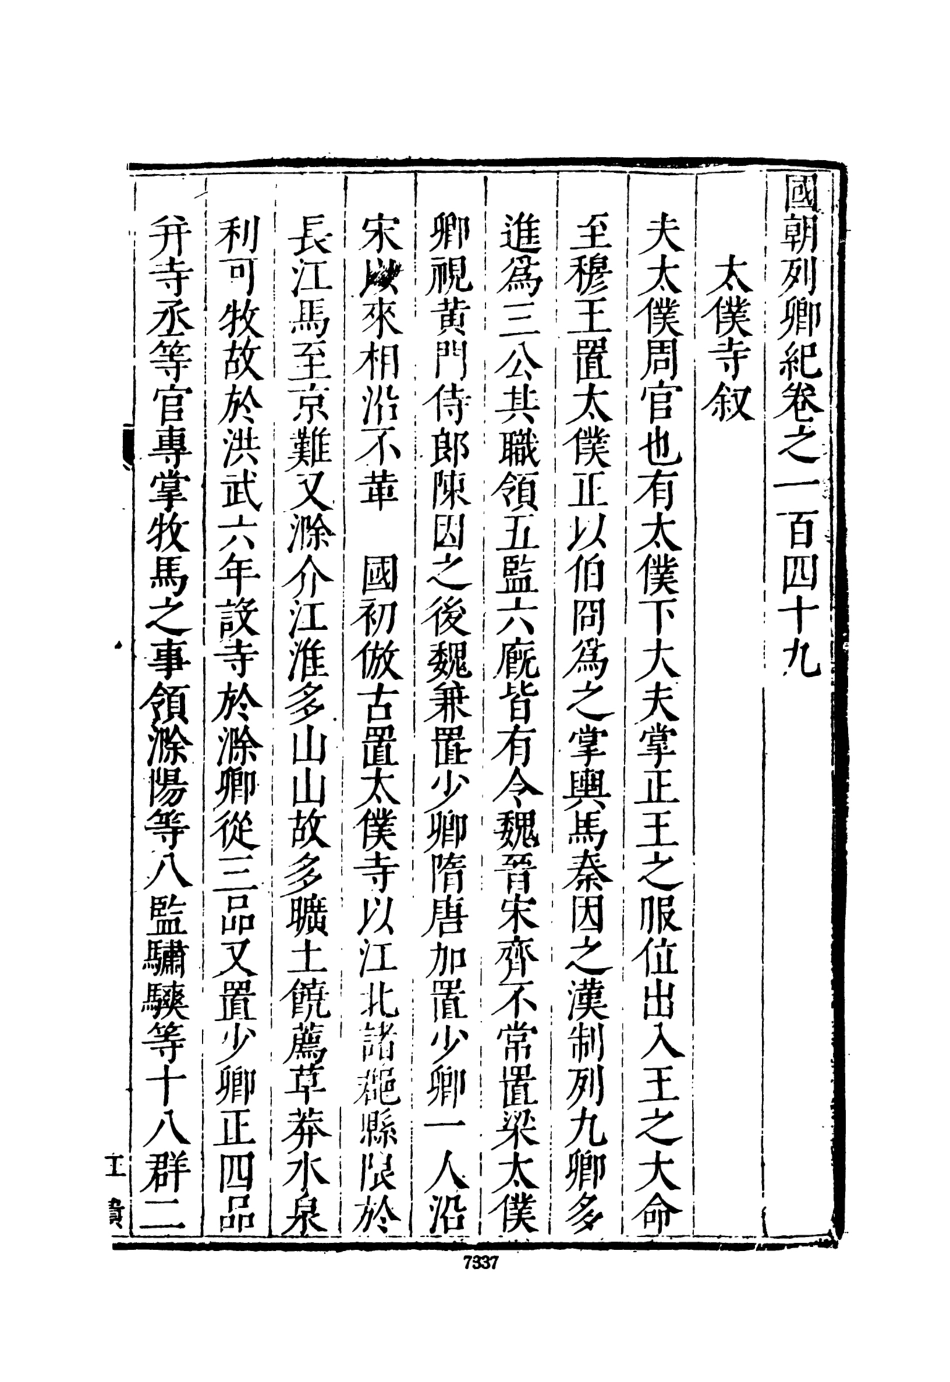 國朝列卿紀卷之一百四十九
太僕寺叙
夫太僕周官也有太僕下大夫掌正王之服位出入王之大命
至穆王置太僕正以伯冏爲之掌輿馬秦因之漢制列九卿多
進爲三公其職領五監六廐皆有令魏晉宋齊不常置梁太僕
卿視黄門侍郎陳因之後魏兼置少卿隋唐加置少卿一人沿
宋以來相沿不革　國初倣古置太僕寺以江北諸郡縣限於
長江馬至京難又滁介江淮多山山故多曠土饒薦草莽水泉
利可牧故於洪武六年設寺於滁卿從三品又置少卿正四品
并寺丞等官專掌牧馬之事領滁陽等八監驌驦等十八群二
7337